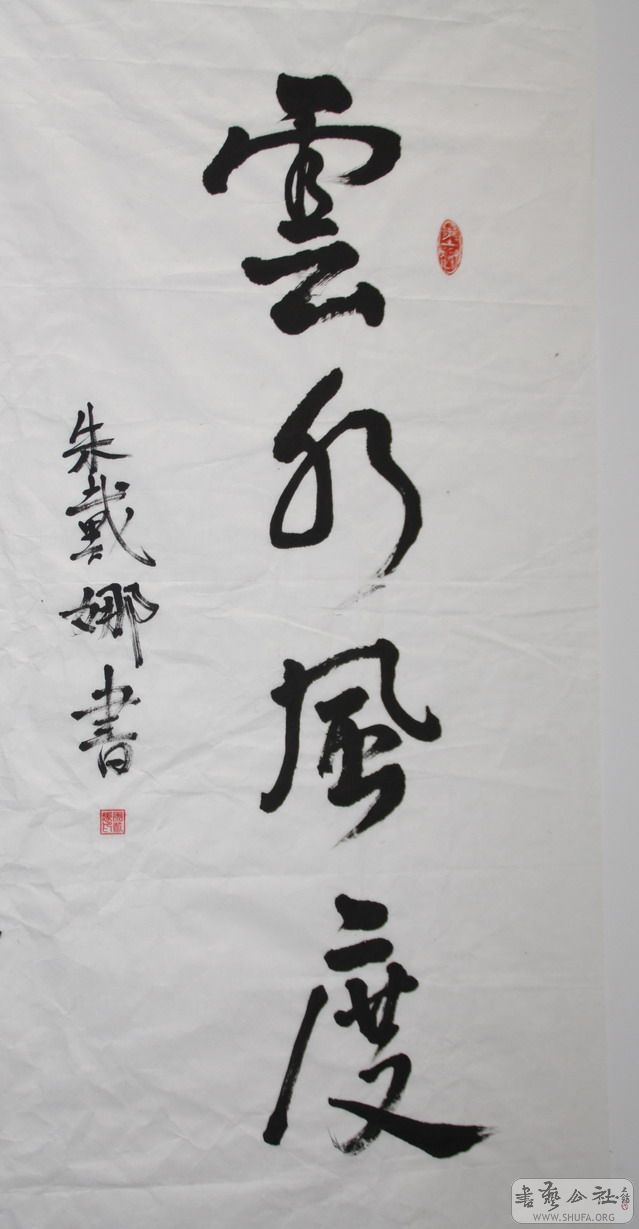 雲水風度
朱戴娜書
書藝公社
WWW.SHUFA.ORG